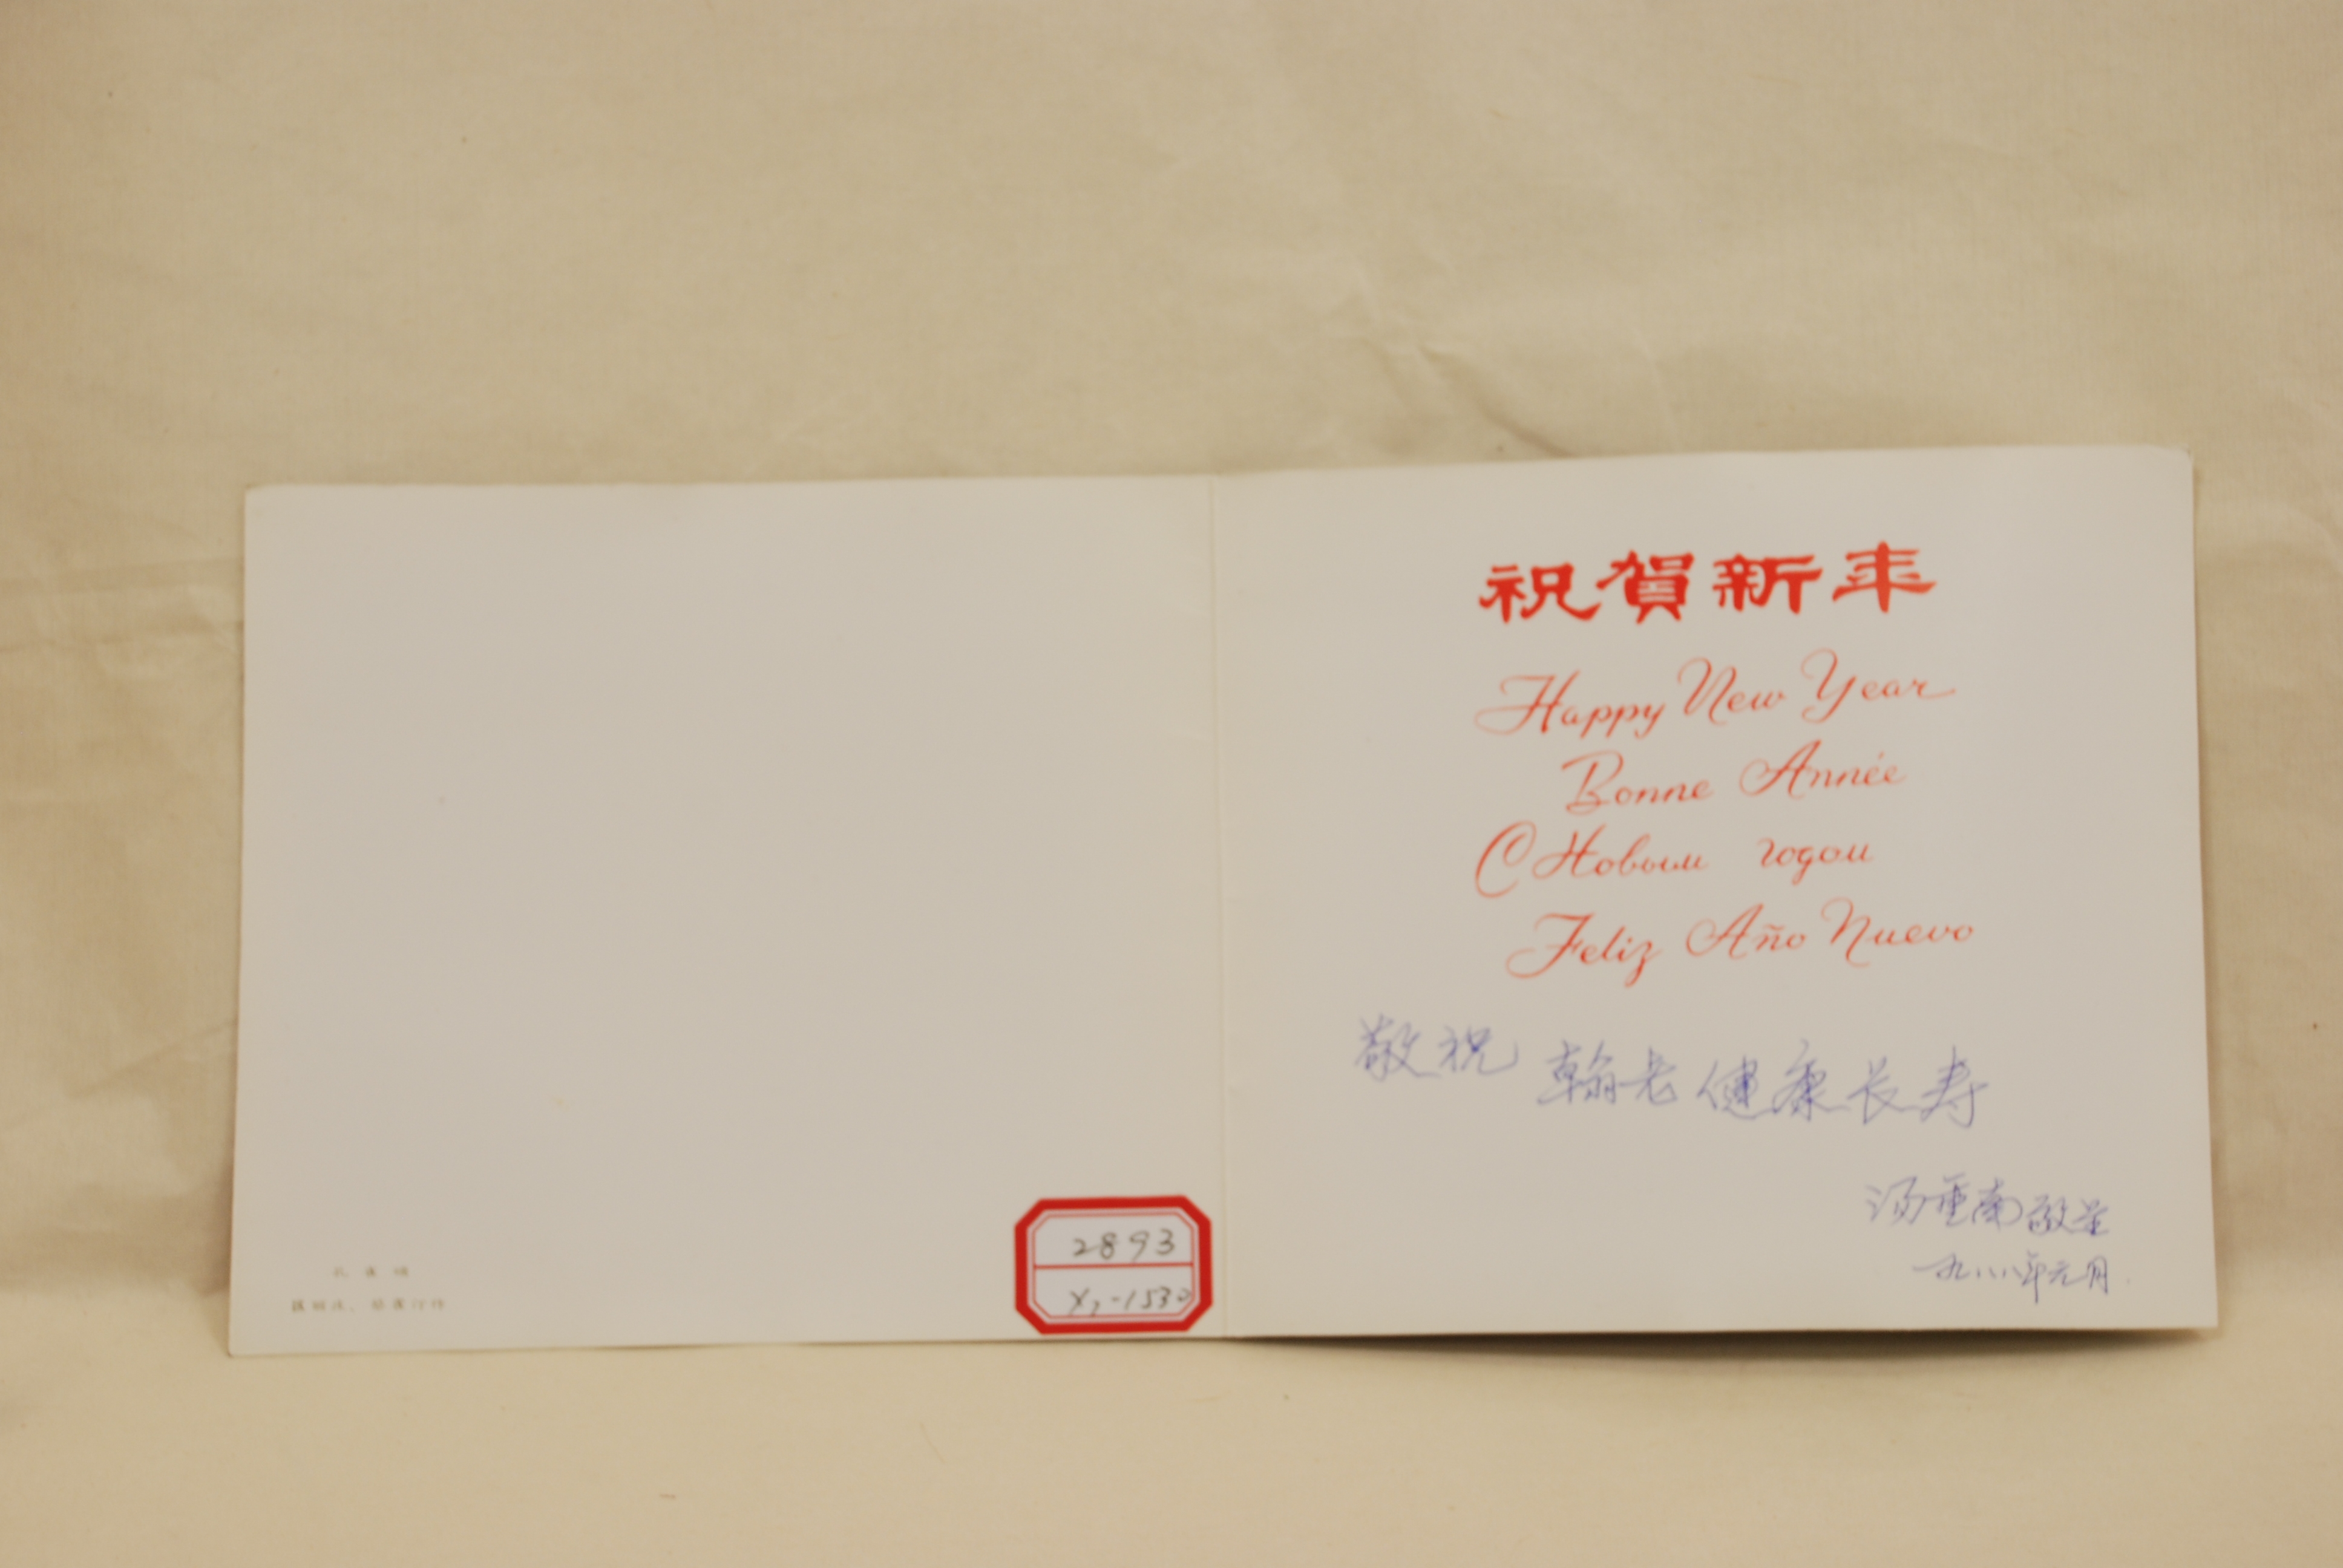 祝賀新年
Happy New Year
Bonne Année
С Новым годом
Feliz Año Nuevo
敬祝 翰老健康长寿
汤重南敬呈
一九八八年元月
2893
X7-1530